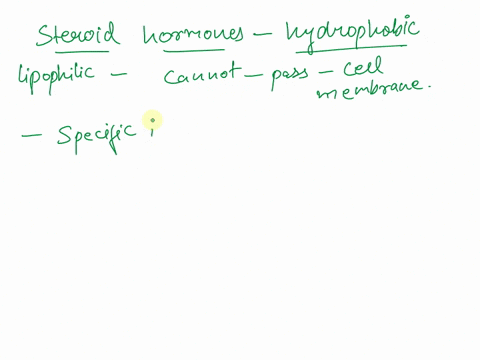 Steroid hormones - hydrophobic
lipophilic - cannot - pass - cell
membrane.
- Specific